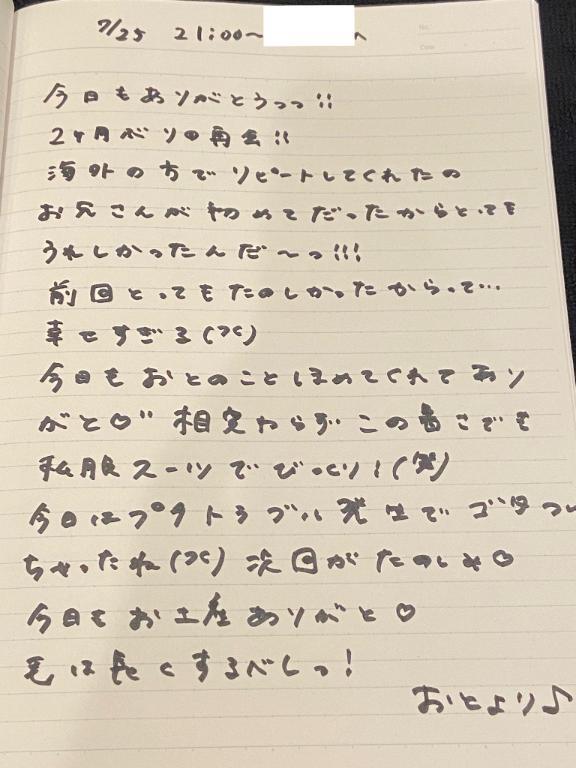 7/25 21:00〜 へ
今日もありがとうっっ!!
2ヶ月ぶりの再会!!
海外の方でリピートしてくれたの
お兄さんが初めてだったからとっても
うれしかったんだ〜っ!!!
前回とってもたのしかったからって…
幸せすぎる(泣)
今日もおとのことほめてくれてあり
がと♡" 相変わらずこの暑さでも
私服スーツでびっくり!(笑)
今日はプチトラブル発生でゴタつい
ちゃったね(泣) 次回がたのしみ♡
今日もお土産ありがと♡
毛は長くするべしっ!
おとより♪